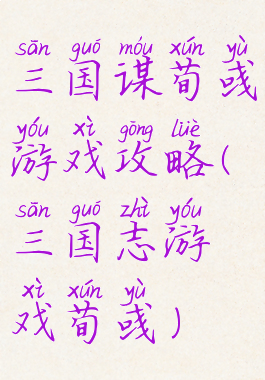 sān guó móu xún yù
三国谋荀彧
yóu xì gōng lüè
游戏攻略(
sān guó zhì yóu
三国志游
xì xún yù
戏荀彧)